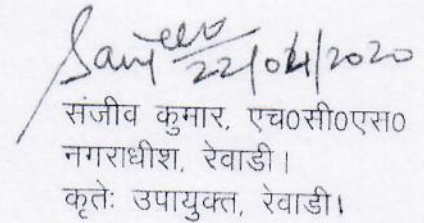 Sanjeev
22/04/2020
संजीव कुमार, एच0सी0एस0
नगराधीश, रेवाडी।
कृतेः उपायुक्त, रेवाडी।